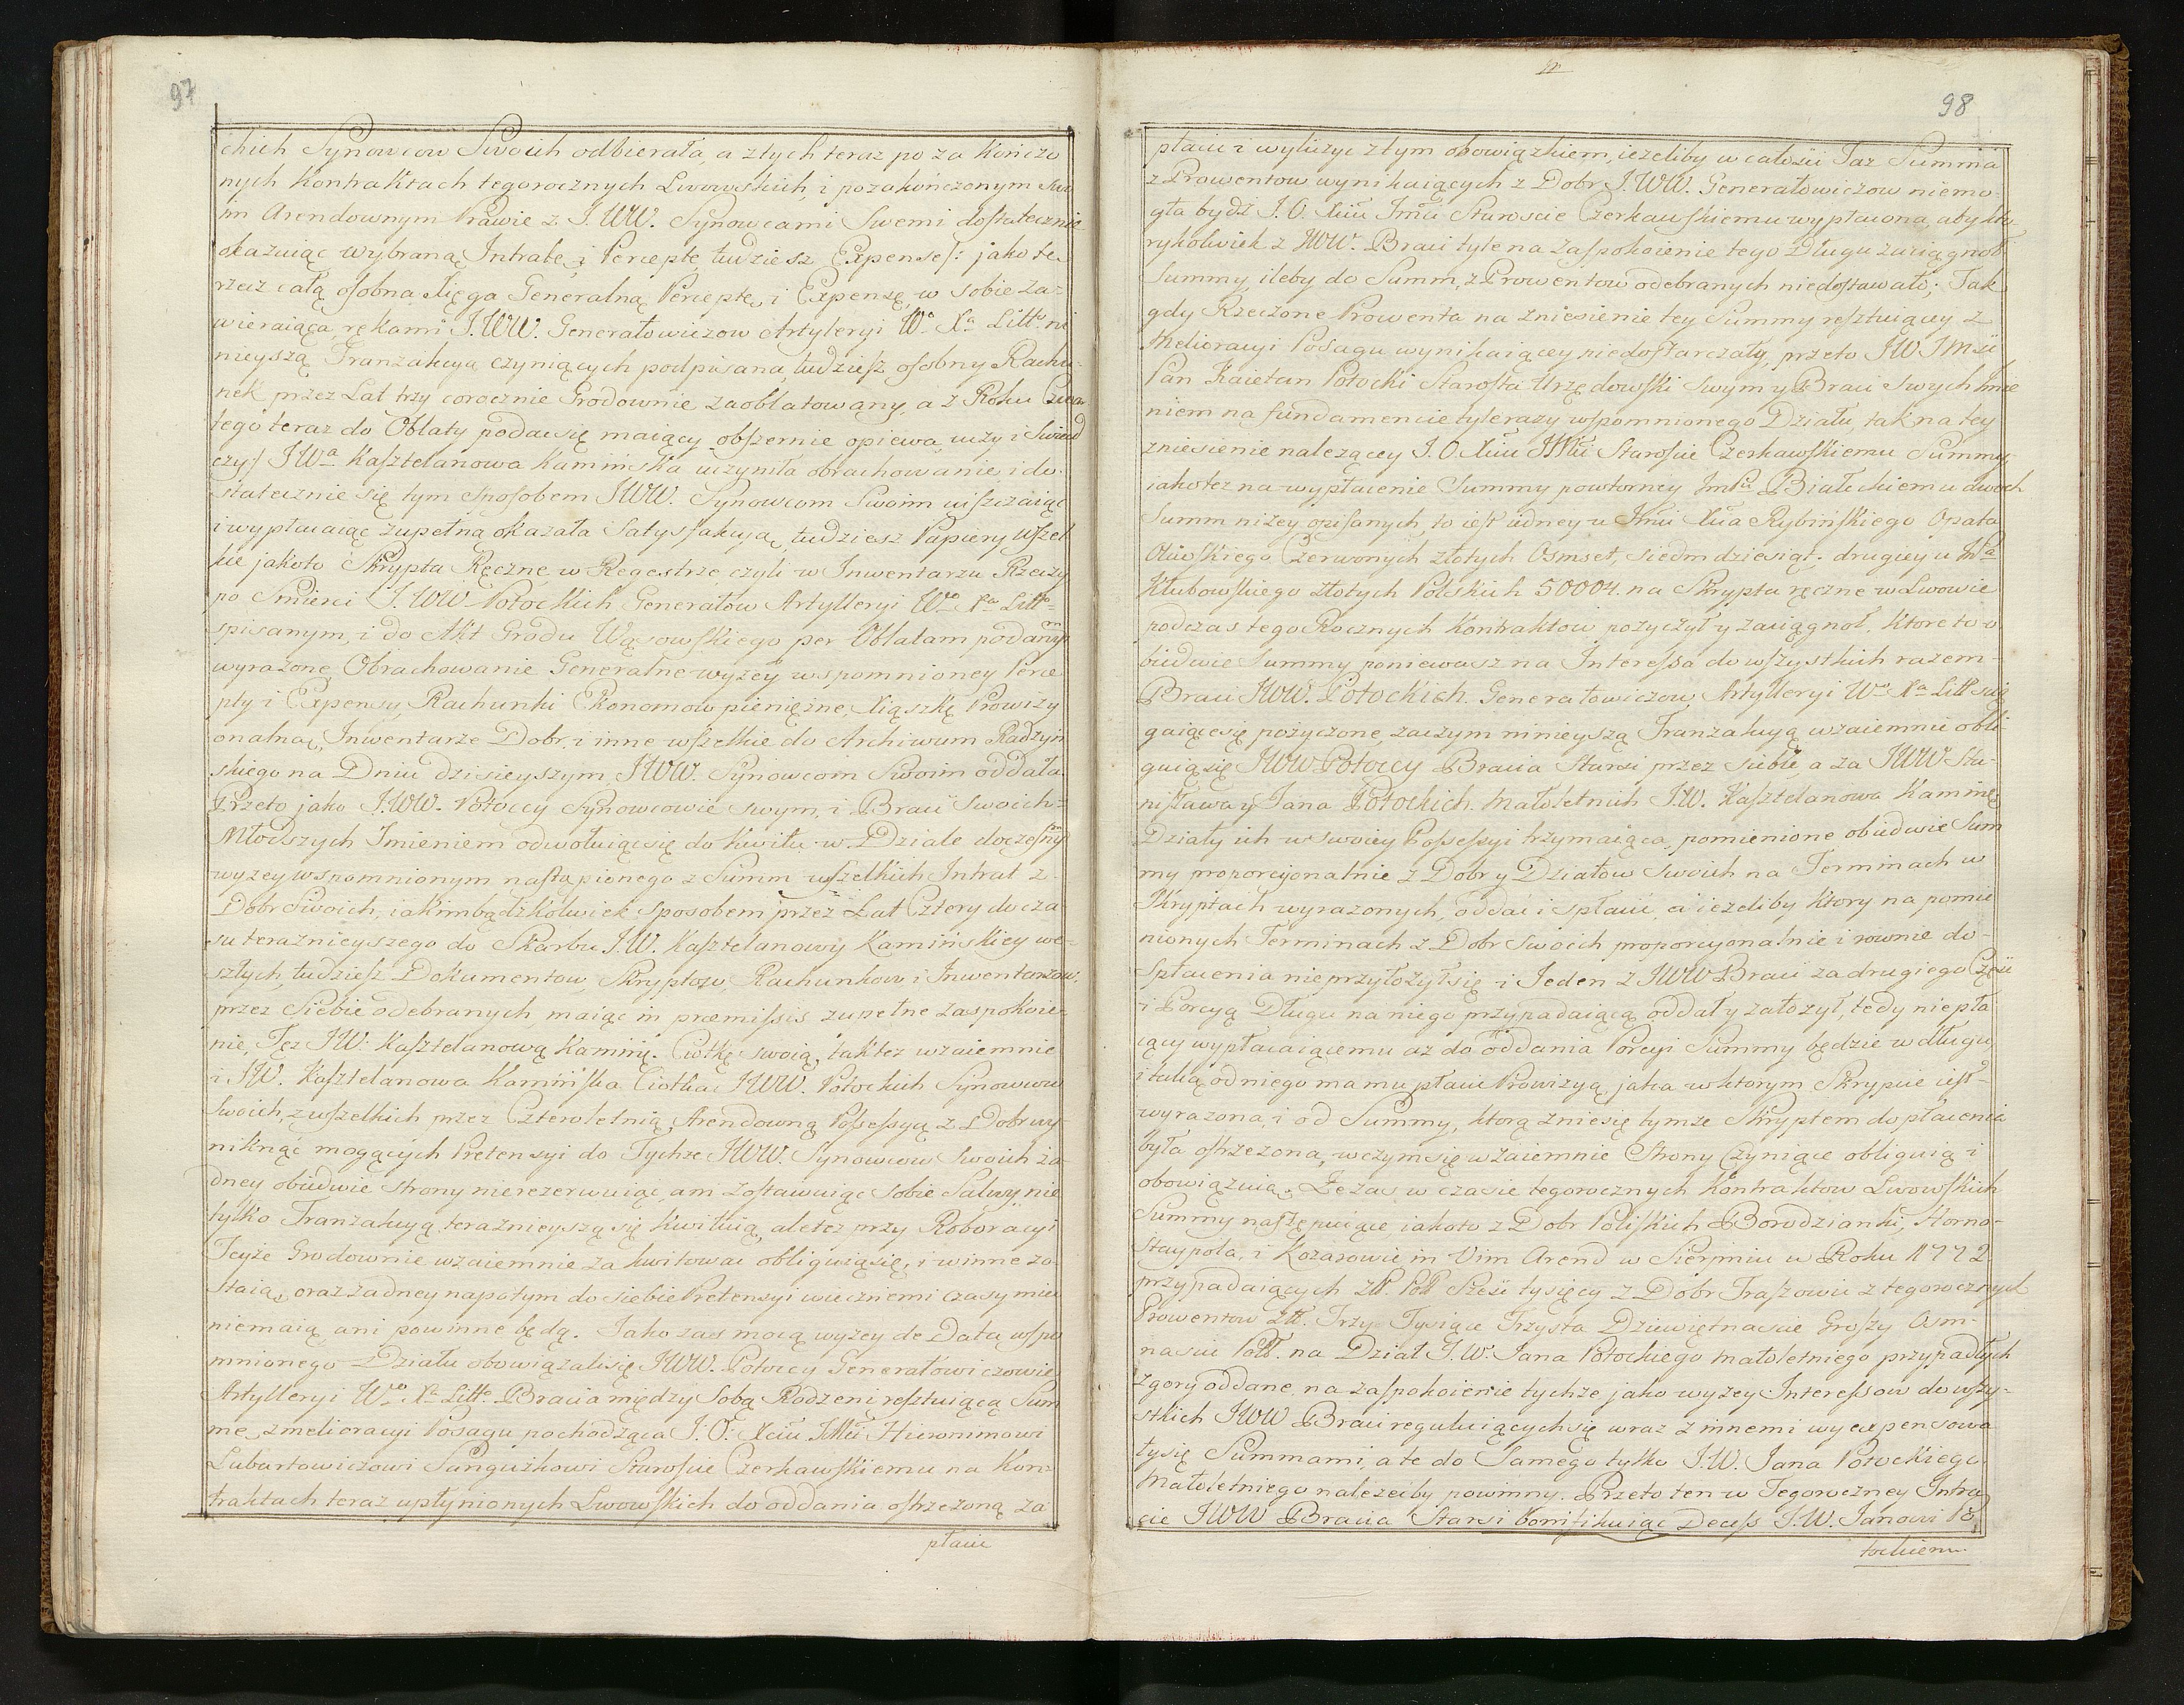 97
ckich Synowcow Swoich odbierała, a z tych teraz po za kończo
nych Kontraktach tegorocznych Lwowskich, i po zakończonym swo
im Arendownym Prawie z J. WW. Synowcami Swemi dostatecznie
okazuiąc wybraną Intratę, i Perceptę, tudziesz Expensę/: jako te
rzecz całą osobna Xięga Generalną Perceptę, i Expensę, w sobie za-
wieraiąca, rękami J.WW. Generałowiczow Artyleryi Wo. Xa. Litto. ni
nieyszą Tranzakcyą czyniących podpisana, tudziesz osobny Rachu-
nek przez Lat trzy corocznie Grodownie zaoblatowany, a z Roku Czwar
tego teraz do Oblaty podać się maiący obszernie opiewa, uczy i Świad
czy:/ JWa Kasztelanowa Kamińska uczyniła obrachowanie, i do-
statecznie się tym sposobem JWW. Synowcom Swoim uiszczaiąc
i wypłacaiąc zupełną okazała Satysfakcyą, tudziesz Papiery wszel
kie jakoto Skrypta Ręczne, w Regestrze, czyli w Inwentarzu Rzeczy
po Śmierci J. WW Potockich Generałow Artylleryi Wo. Xa. Litto.
spisanym, i do Akt Grodu Wąsowskiego per Oblatam podanym
wyrażone, Obrachowanie Generalne wyżey wspomnioney Perce
pty i Expensy, Rachunki Ekonomow pieniężne, Xiąszkę Prowizy
onalną, Inwentarze Dobr, i inne wszelkie do Archiwum Radzyń
skiego na Dniu dzisieyszym JWW. Synowcom Swoim oddała.
Przeto jako J.WW. Potoccy Synowcowie swym, i Braci Swoich
Młodszych Imieniem odwołuiąc się do Kwitu w Dziale doczesnym
wyżey wspomnionym nastąpionego z Summ wszelkich Intrat z
Dobr Swoich, iakimbądźkolwiek sposobem przez Lat Cztery do cza
su teraznieyszego do Skarbu J.W. Kasztelanowy Kamińskiey we-
szłych, tudziesz Dokumentow, Skryptow, Rachunkow i Inwentarzow,
przez Siebie odebranych, maiąc in præmissis zupełne zaspokoie-
nie, Tęz JW. Kasztelanową Kamiń. Ciotkę swoią, także wzaiemnie
i JW. Kasztelanowa Kamińska Ciotka JWW. Potockich Synowcow
Swoich, z wszelkich przez Czteroletnią Arendowną Possessyą z Dobr wy-
niknąć mogących Pretensyi do Tychże JWW. Synowcow Swoich ża
dney obudwie strony nierezerwuiąc, ani zostawuiąc sobie Salwy nie
tylko Tranzakcyą teraznieyszą się kwituią, ale też przy Roboracyi
Teyże Grodownie wzaiemnie zakwitować obliguią się, i winne zo
staią, oraz żadney napotym do siebie Pretensyi wiecznemi czasy mieć
niemaią, ani powinne będą. Jako zas mocą wyżey de Data wspo
mnionego Działu obowiązali się JWW. Potoccy Generałowiczowie
Artylleryi Wo. Xa. Litto. Bracia między Sobą Rodzeni resztuiącą Sum
mę z melioracyi Posagu pochodzącą J.O. Xciu JMci Hieronimowi
Lubartowiczowi Sanguszkowi Staroscie Czerkawskiemu na Kon-
traktach teraz upłynionych Lwowskich do oddania ostrzeżoną za
płacić
98
płacić i wyliczyć z tym obowiązkiem, ieżeliby w całości Taż Summa
z Prowentow wynikaiących z Dobr J. WW. Generałowiczow niemo
gła bydź J.O. Xciu Jmci Staroscie Czerkawskiemu wypłacona, aby któ-
rykolwiek z JWW. Braci tyle na zaspokoienie tego Długu zaciągnoł
Summy, ileby do Summ, z Prowentow odebranych niedostawało; Jak
gdy Rzeczone Prowenta na zniesienie tey Summy resztuiącey z
Melioracyi Posagu wynikaiącey niedostarczały, przeto JW JMsci
Pan Kaietan Potocki Starosta Urzędowski swym y Braci Swych Imie
niem na fundamencie tylerazy wspomnionego Działu, tak na tey
zniesienie należącey J.O. Xciu JMci Staroscie Czerkawskiemu Summy
iako też na wypłacenie Summy powtorney Jmsci Białeckiemu dwoch
Summ niżey opisanych, to iest iedney u Jmci Xia Rybińskiego Opata
Oliwskiego Czerwonych złotych Osmset, siedmdziesiąt; drugiey u Jmsci
Kłubowskiego złotych Polskich 50004. na Skrypta ręczne w Lwowie
podczas tego Rocznych Kontraktow pożyczył y zaciągnoł. Ktore to o
budwie Summy poniewasz na Interessa do wszystkich razem
Braci JWW. Potockich. Generałowiczow, Artylleryi Wo. Xa Litt ścią
gaiące się pożyczone, zaczym ninieyszą Tranzakcyą wzaiemnie obli-
guią się JWW Potoccy Bracia Starsi przez siebie, a za JWW Sta-
nisława y Jana Potockich. Małoletnich J.W. Kasztelanowa Kamiń.
Działy ich w swoiey Possessyi trzymaiąca, pomienione obiedwie Sum
my proporcyonalnie z Dobr y Działow Swoich na Terminach w
Skryptach wyrażonych, oddać i spłacić, a ieżeliby ktory na pomie
nionych Terminach z Dobr Swoich proporcyonalnie i rownie do-
Spłacenia nieprzyłożył się i Jeden z JWW Braci za drugiego Część
i Porcyą Długu na niego przypadaiącą oddał y założył, tedy niepła
cący wypłacaiącemu aż do oddania Porcyi Summy będzie w długu,
i taką od niego ma mu płacić Prowizyą, jaka w ktorym Skrypcie iest
wyrażona, i od Summy, ktorą zniesie tymże Skryptem do płacenia
była ostrzeżona, w czym się wzaiemnie Strony Czyniące obliguią i
obowiązuią. Że zaś w czasie tegorocznych Kontraktow Lwowskich
Summy następuiące iakoto z Dobr Poliskich Borodzianki, Horno-
staypola, i Kozarowic in Vim Arend w Sierpniu w Roku 1772
przypadaiących złł. Poll Sześć tysięcy z Dobr Traszowic z tegorocznych
Prowentow złł. Trzy Tysiące Trzysta Dziewiętnascie Groszy Osm-
nascie Poll. na Dział J.W. Jana Potockiego małoletniego przypadłych
zgory oddane, na zaspokoienie tychże jako wyżey Interessow do wszy-
stkich JWW Braci reguluiących się wraz z innemi wyexpensowa
ły się Summami, a te do Samego tylko J.W. Jana Potockiego
Małoletniego należećby powinny. Przeto ten w Tegoroczney Intra
cie JWW Bracia Starsi bonifikuiąc Decess J.W. Janowi Po
tockiemu